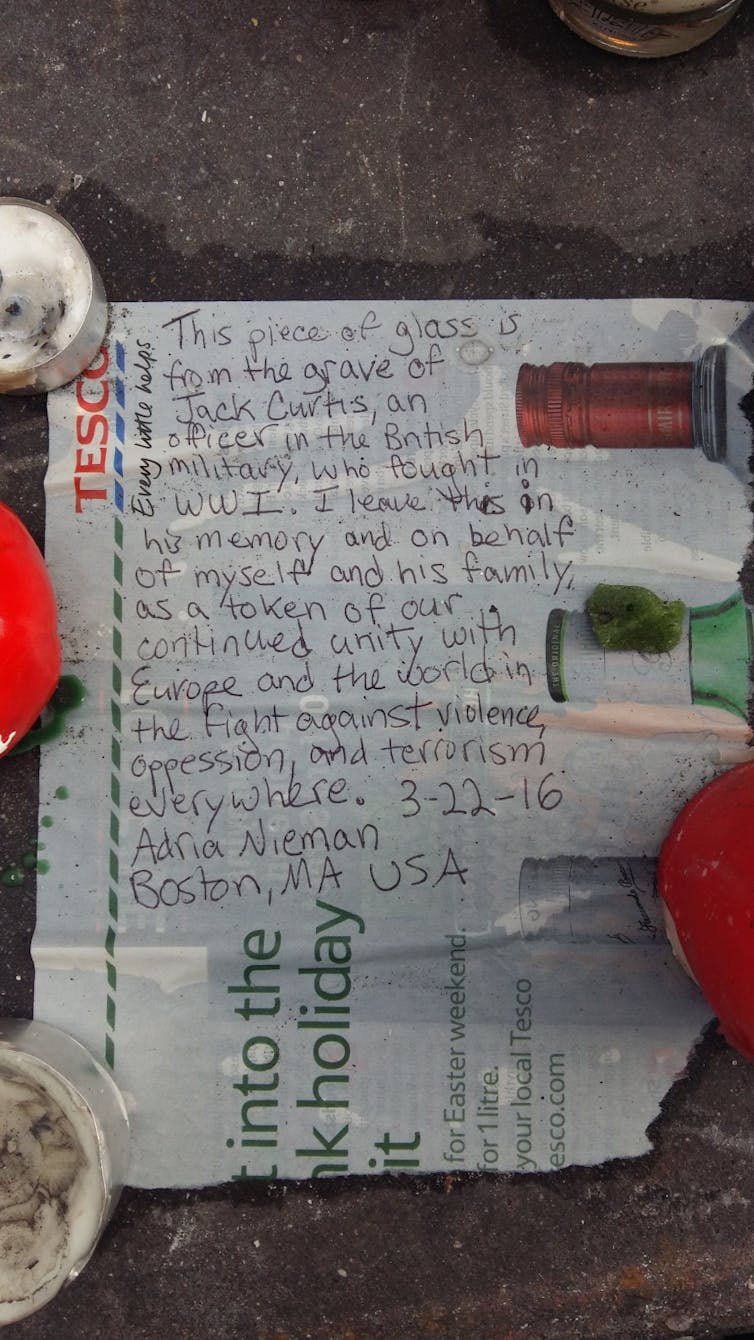 This piece of glass is
from the grave of
Jack Curtis, an
officer in the British
military, who fought in
WWI. I leave this in
his memory and on behalf
of myself and his family,
as a token of our
continued unity with
Europe and the world in
the fight against violence,
oppession, and terrorism
everywhere. 3-22-16
Adria Nieman
Boston, MA USA
TESCO
Every little helps
t into the
nk holiday
it
for Easter weekend.
for 1 litre.
your local Tesco
esco.com
THE ORIGINAL